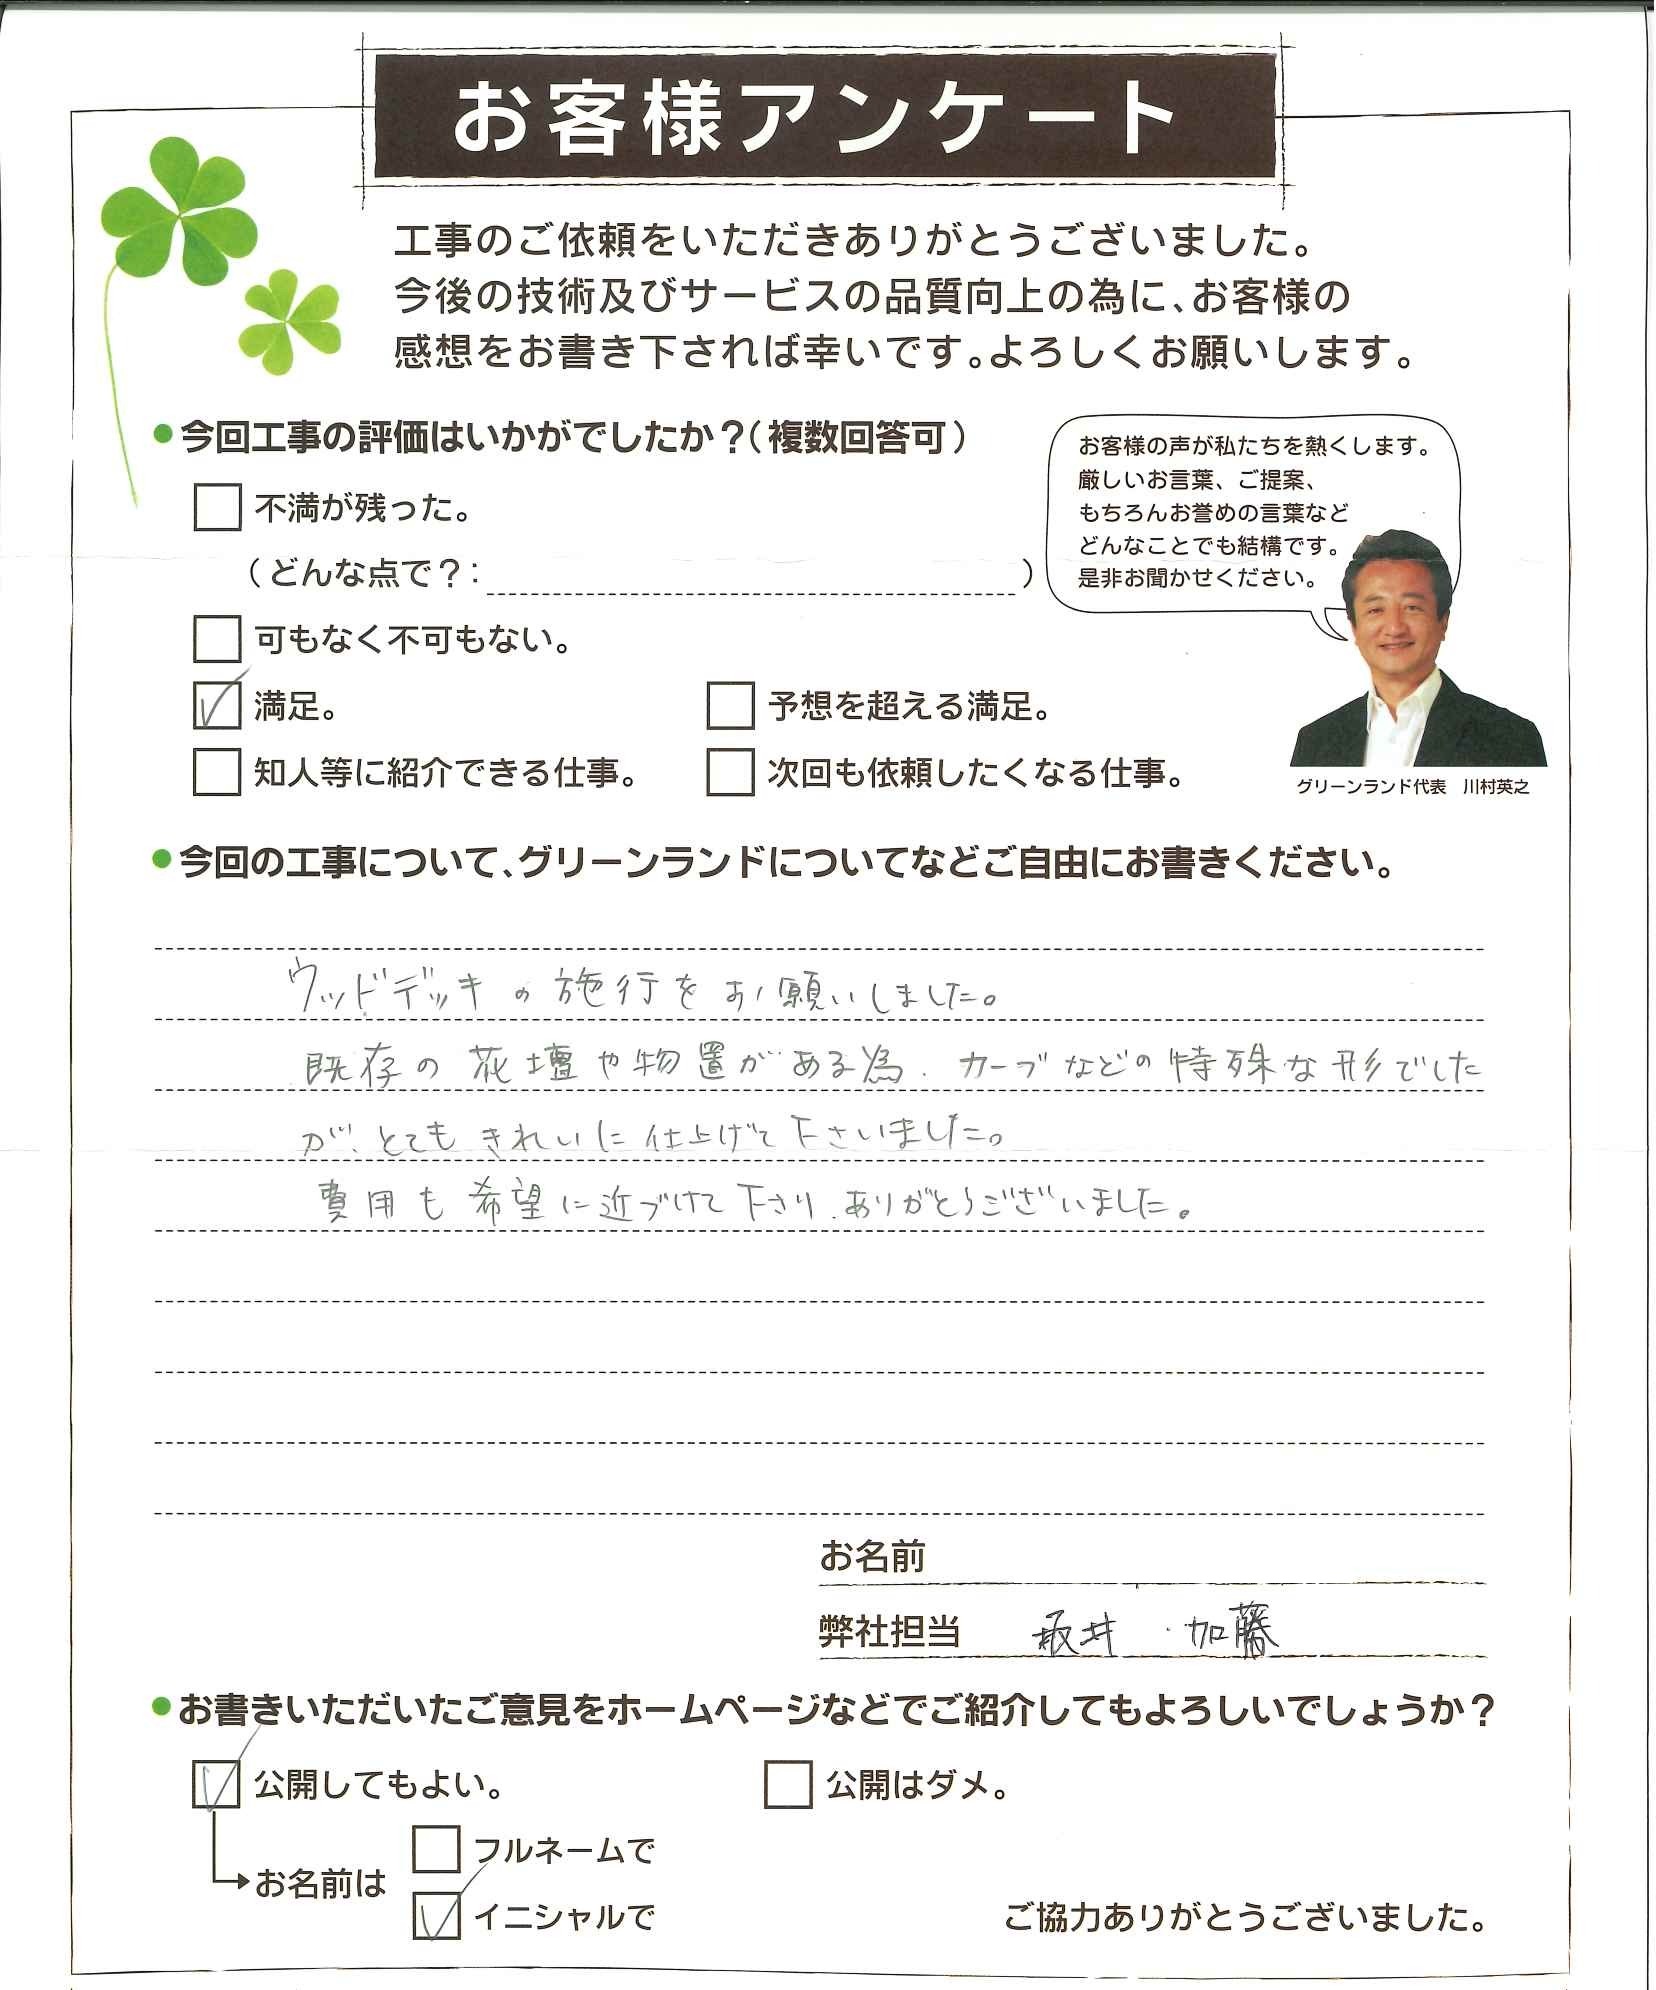 お客様アンケート
工事のご依頼をいただきありがとうございました。
今後の技術及びサービスの品質向上の為に、お客様の
感想をお書き下されば幸いです。よろしくお願いします。
●今回工事の評価はいかがでしたか？（複数回答可）
不満が残った。
（どんな点で？：　）
可もなく不可もない。
満足。
予想を超える満足。
知人等に紹介できる仕事。
次回も依頼したくなる仕事。
お客様の声が私たちを熱くします。
厳しいお言葉、ご提案、
もちろんお誉めの言葉など
どんなことでも結構です。
是非お聞かせください。
グリーンランド代表　川村英之
●今回の工事について、グリーンランドについてなどご自由にお書きください。
ウッドデッキの施行をお願いしました。
既存の花壇や物置がある為、カーブなどの特殊な形でした
が、とてもきれいに仕上げて下さいました。
費用も希望に近づけて下さり、ありがとうございました。
お名前
弊社担当　坂井・加藤
●お書きいただいたご意見をホームページなどでご紹介してもよろしいでしょうか？
公開してもよい。
公開はダメ。
お名前は
フルネームで
イニシャルで
ご協力ありがとうございました。